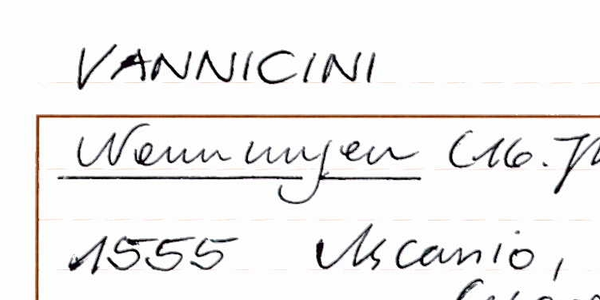 VANNICINI
Nennungen (16. Jh
1555 Ascanio,